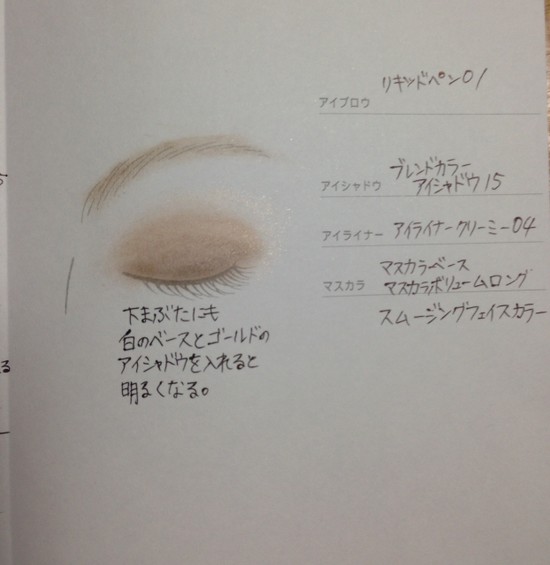 リキッドペン01
アイブロウ
ブレンドカラー
アイシャドウ アイシャドウ15
アイライナー アイライナークリーミー04
マスカラベース
マスカラ マスカラボリュームロング
スムージングフェイスカラー
下まぶたにも
白のベースとゴールドの
アイシャドウを入れると
明るくなる。
る